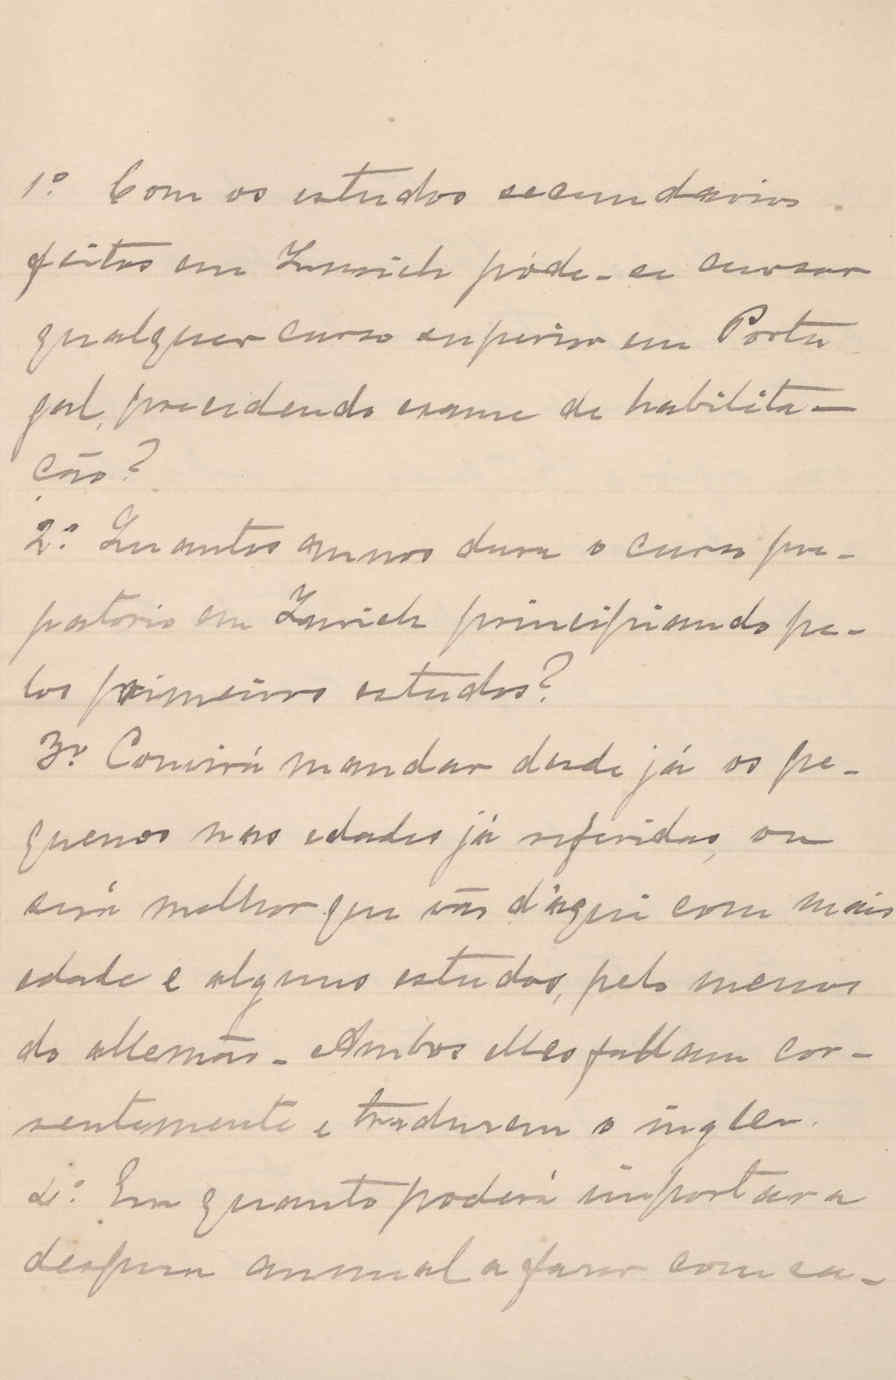 1.º Com os estudos secundarios
feitos em Zurich póde-se cursar
qualquer curso superior em Portu
gal, precedendo exame de habilita-
ção?
2.º Quantos annos dura o curso pre-
patorio em Zurich principiando pe-
los primeiros estudos?
3.º Convirá mandar desde já os pe-
quenos nas edades já referidas, ou
será melhor que vão d'aqui com mais
edade e alguns estudos, pelo menos
do allemão - Ambos elles fallam cor-
rentemente e traduzem o inglez.
4.º Em quanto poderá importar a
despeza annual a fazer com ca-